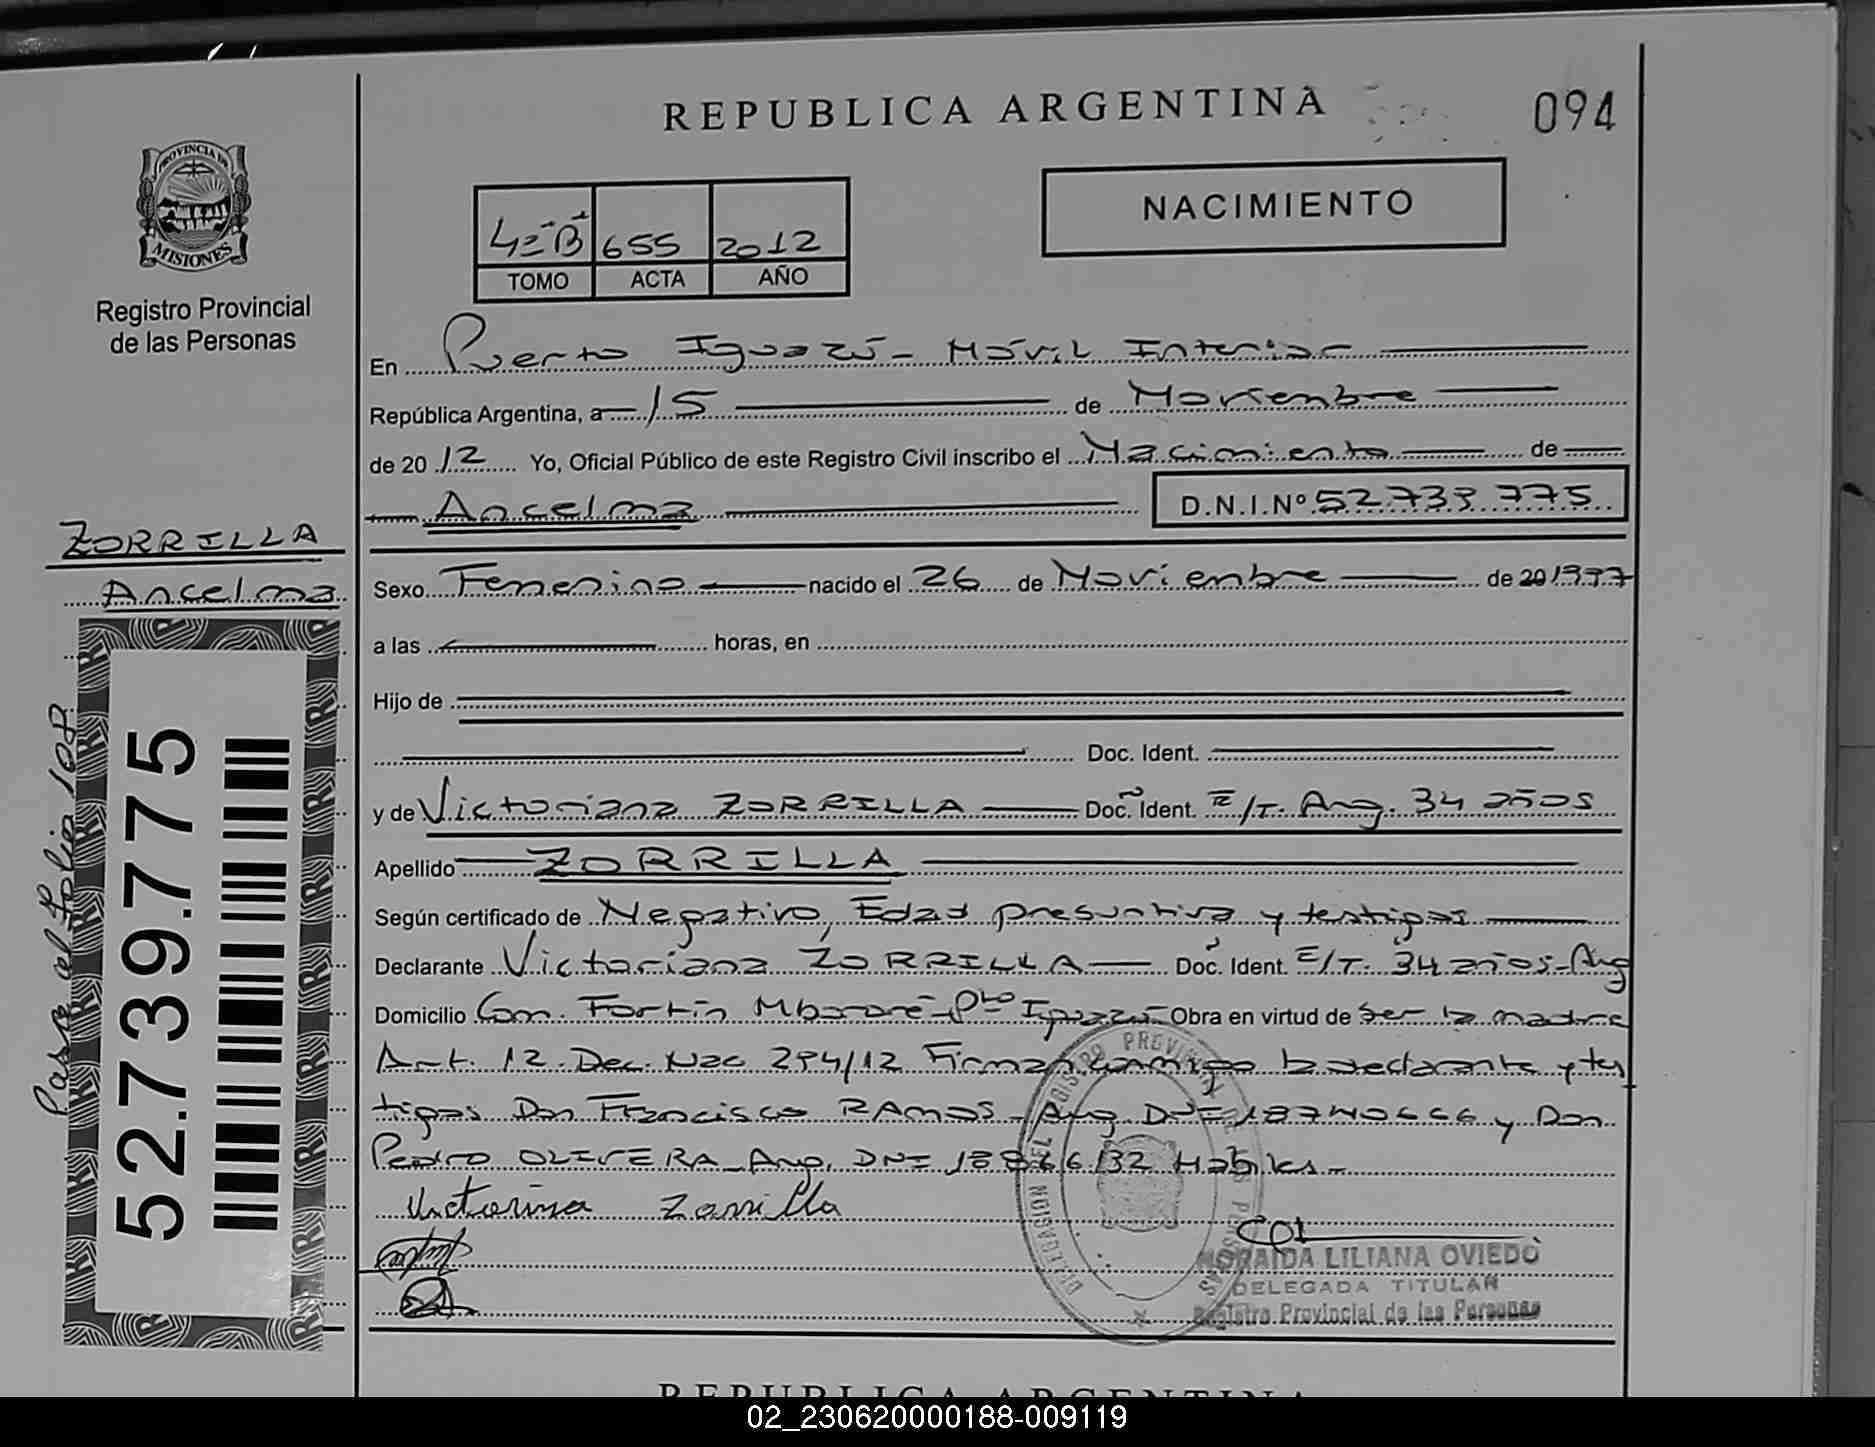 REPUBLICA ARGENTINA
094
PROVINCIA DE
MISIONES
Registro Provincial
de las Personas
NACIMIENTO
4º "B" 655 2012
TOMO ACTA AÑO
En Puerto Iguazú - Móvil Interior
República Argentina, a 15 de Noviembre
de 2012 Yo, Oficial Público de este Registro Civil inscribo el Nacimiento de
Ancelma D.N.I.Nº 52.739.775
ZORRILLA
Ancelma
Sexo Femenino nacido el 26 de Noviembre de 20 1997
a las horas, en
Hijo de
Doc. Ident.
y de Victoriana ZORRILLA Doc. Ident. E/T. Arg. 34 años
Apellido ZORRILLA
Según certificado de Negativo, Edad presuntiva y testigos
Declarante Victoriana ZORRILLA Doc. Ident. E/T. 34 años - Arg
Domicilio Com. Fortín Mbororé - Pto Iguazú Obra en virtud de Ser la madre
Art. 12. Dec. Nac 294/12 Firman conmigo la declarante y tes
tigos Don Francisco RAMOS - Arg. DNI y Don
Pedro OLIVERA - Arg. DNI Hábiles -
Victorina Zorrilla
DELEGACION DEL REGISTRO PROVINCIAL DE LAS PERSONAS
NORAIDA LILIANA OVIEDO
DELEGADA TITULAR
Registro Provincial de las Personas
Pasra al folio 108
52.739.775
REPUBLICA ARGENTINA
02_230620000188-009119